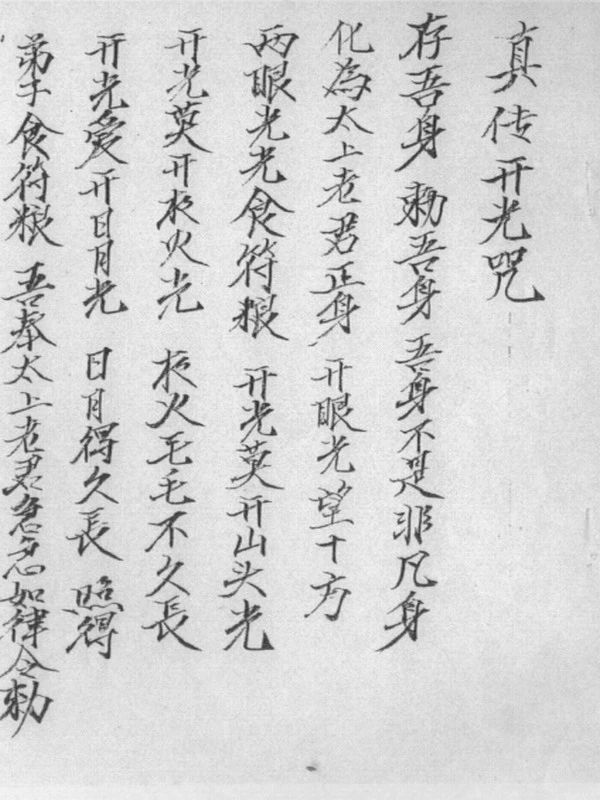 真传开光咒
存吾身 勅吾身 吾身不是非凡身
化為太上老君正身 开眼光望十方
两眼光光食符粮 开光莫开山头光
开光莫开灯火光 灯火毛毛不久長
开光愛开日月光 日月得久長 照得
弟子食符粮 吾奉太上老君急急如律令勅